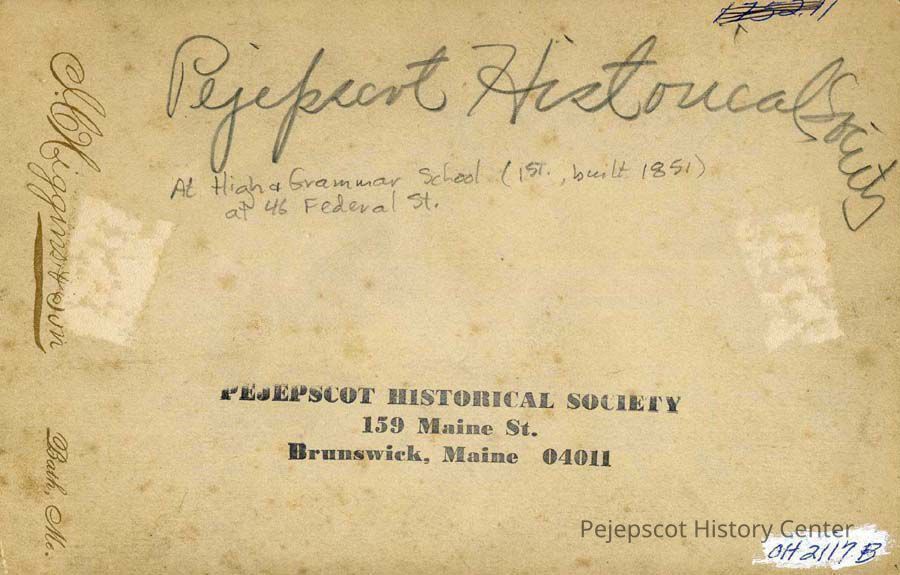 Pejepscot Historical Society
At High & Grammar School (1st., built 1851)
at 46 Federal St.
Bath, Me.
PEJEPSCOT HISTORICAL SOCIETY
159 Maine St.
Brunswick, Maine 04011
Pejepscot History Center
OH 2117 B